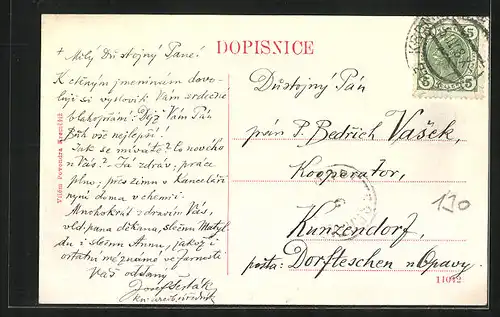 DOPISNICE
+ Milý Důstojný Pane!
K ctěným jmeninám dovo-
luji si vysloviti Vám srdečné
blahopřání: Dejž Vám Pán
Bůh vše nejlepší!
Jak se míváte? Co nového
u Vás? - Já zdráv, práce
plno, přes zimu v kanceláři
nyní doma v chemii.
Mnohokrát zdravím Vás,
vld. pana děkana, slečnu Matyl-
du i slečnu Annu, jakož i
ostatní mé známé ve farnosti
Váš oddaný
Josef
Vilém Povondra Kroměříž
Důstojný Pán
pán P. Bedřich Vašek,
Kooperator,
Kunzendorf,
pošta: Dorfteschen u Opavy.
130
11012
5 5